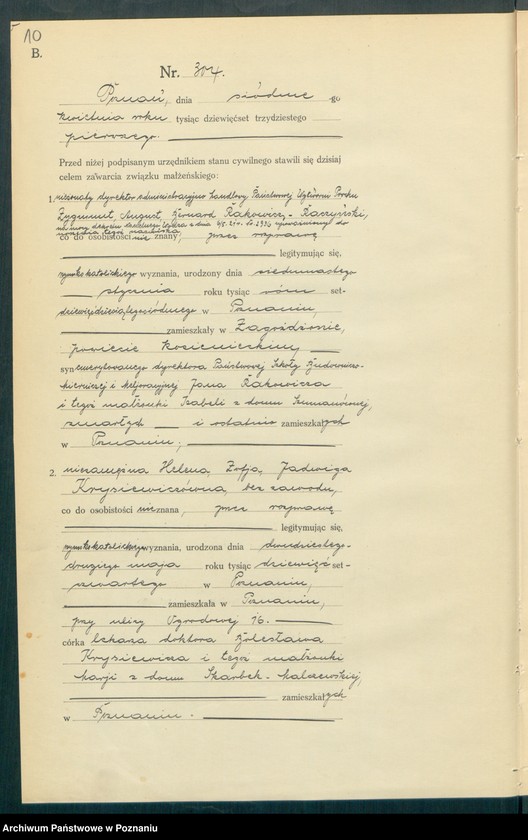 10
B.
Nr. 304.
Poznań, dnia siódme go
kwietnia roku tysiąc dziewięćset trzydziestego
pierwszego.
Przed niżej podpisanym urzędnikiem stanu cywilnego stawili się dzisiaj
celem zawarcia związku małżeńskiego:
1. nieżonaty dyrektor administracyjno handlowy Państwowej Wytwórni Prochu
Zygmunt, August, Bernard Rakowicz - Raczyński,
co do osobistości nie znany, przez rozprawę
legitymując się,
rzymskokatolickiego wyznania, urodzony dnia siedemnastego
stycznia roku tysiąc ośm set-
dziewięćdziesiątegosiódmego w Poznaniu,
zamieszkały w Zagożdżonie,
powiecie kozienickim,
syn emerytowanego dyrektora Państwowej Szkoły Budowniczo-
mierniczej i melioracyjnej Jana Rakowicza
i tegoż małżonki Izabeli z domu Szumanównej,
zmarłych i ostatnio zamieszkałych
w Poznaniu;
2. niezamężna Helena, Zofja, Jadwiga
Krysiewiczówna, bez zawodu,
co do osobistości nieznana, przez rozprawę
legitymując się,
rzymskokatolickiego wyznania, urodzona dnia dwudziestego-
drugiego maja roku tysiąc dziewięć set-
czwartego w Poznaniu,
zamieszkała w Poznaniu,
przy ulicy Ogrodowej 16.
córka lekarza doktora Bolesława
Krysiewicza i tegoż małżonki
Marji z domu Skarbek - Malczewskiej,
zamieszkałych
w Poznaniu.
Archiwum Państwowe w Poznaniu